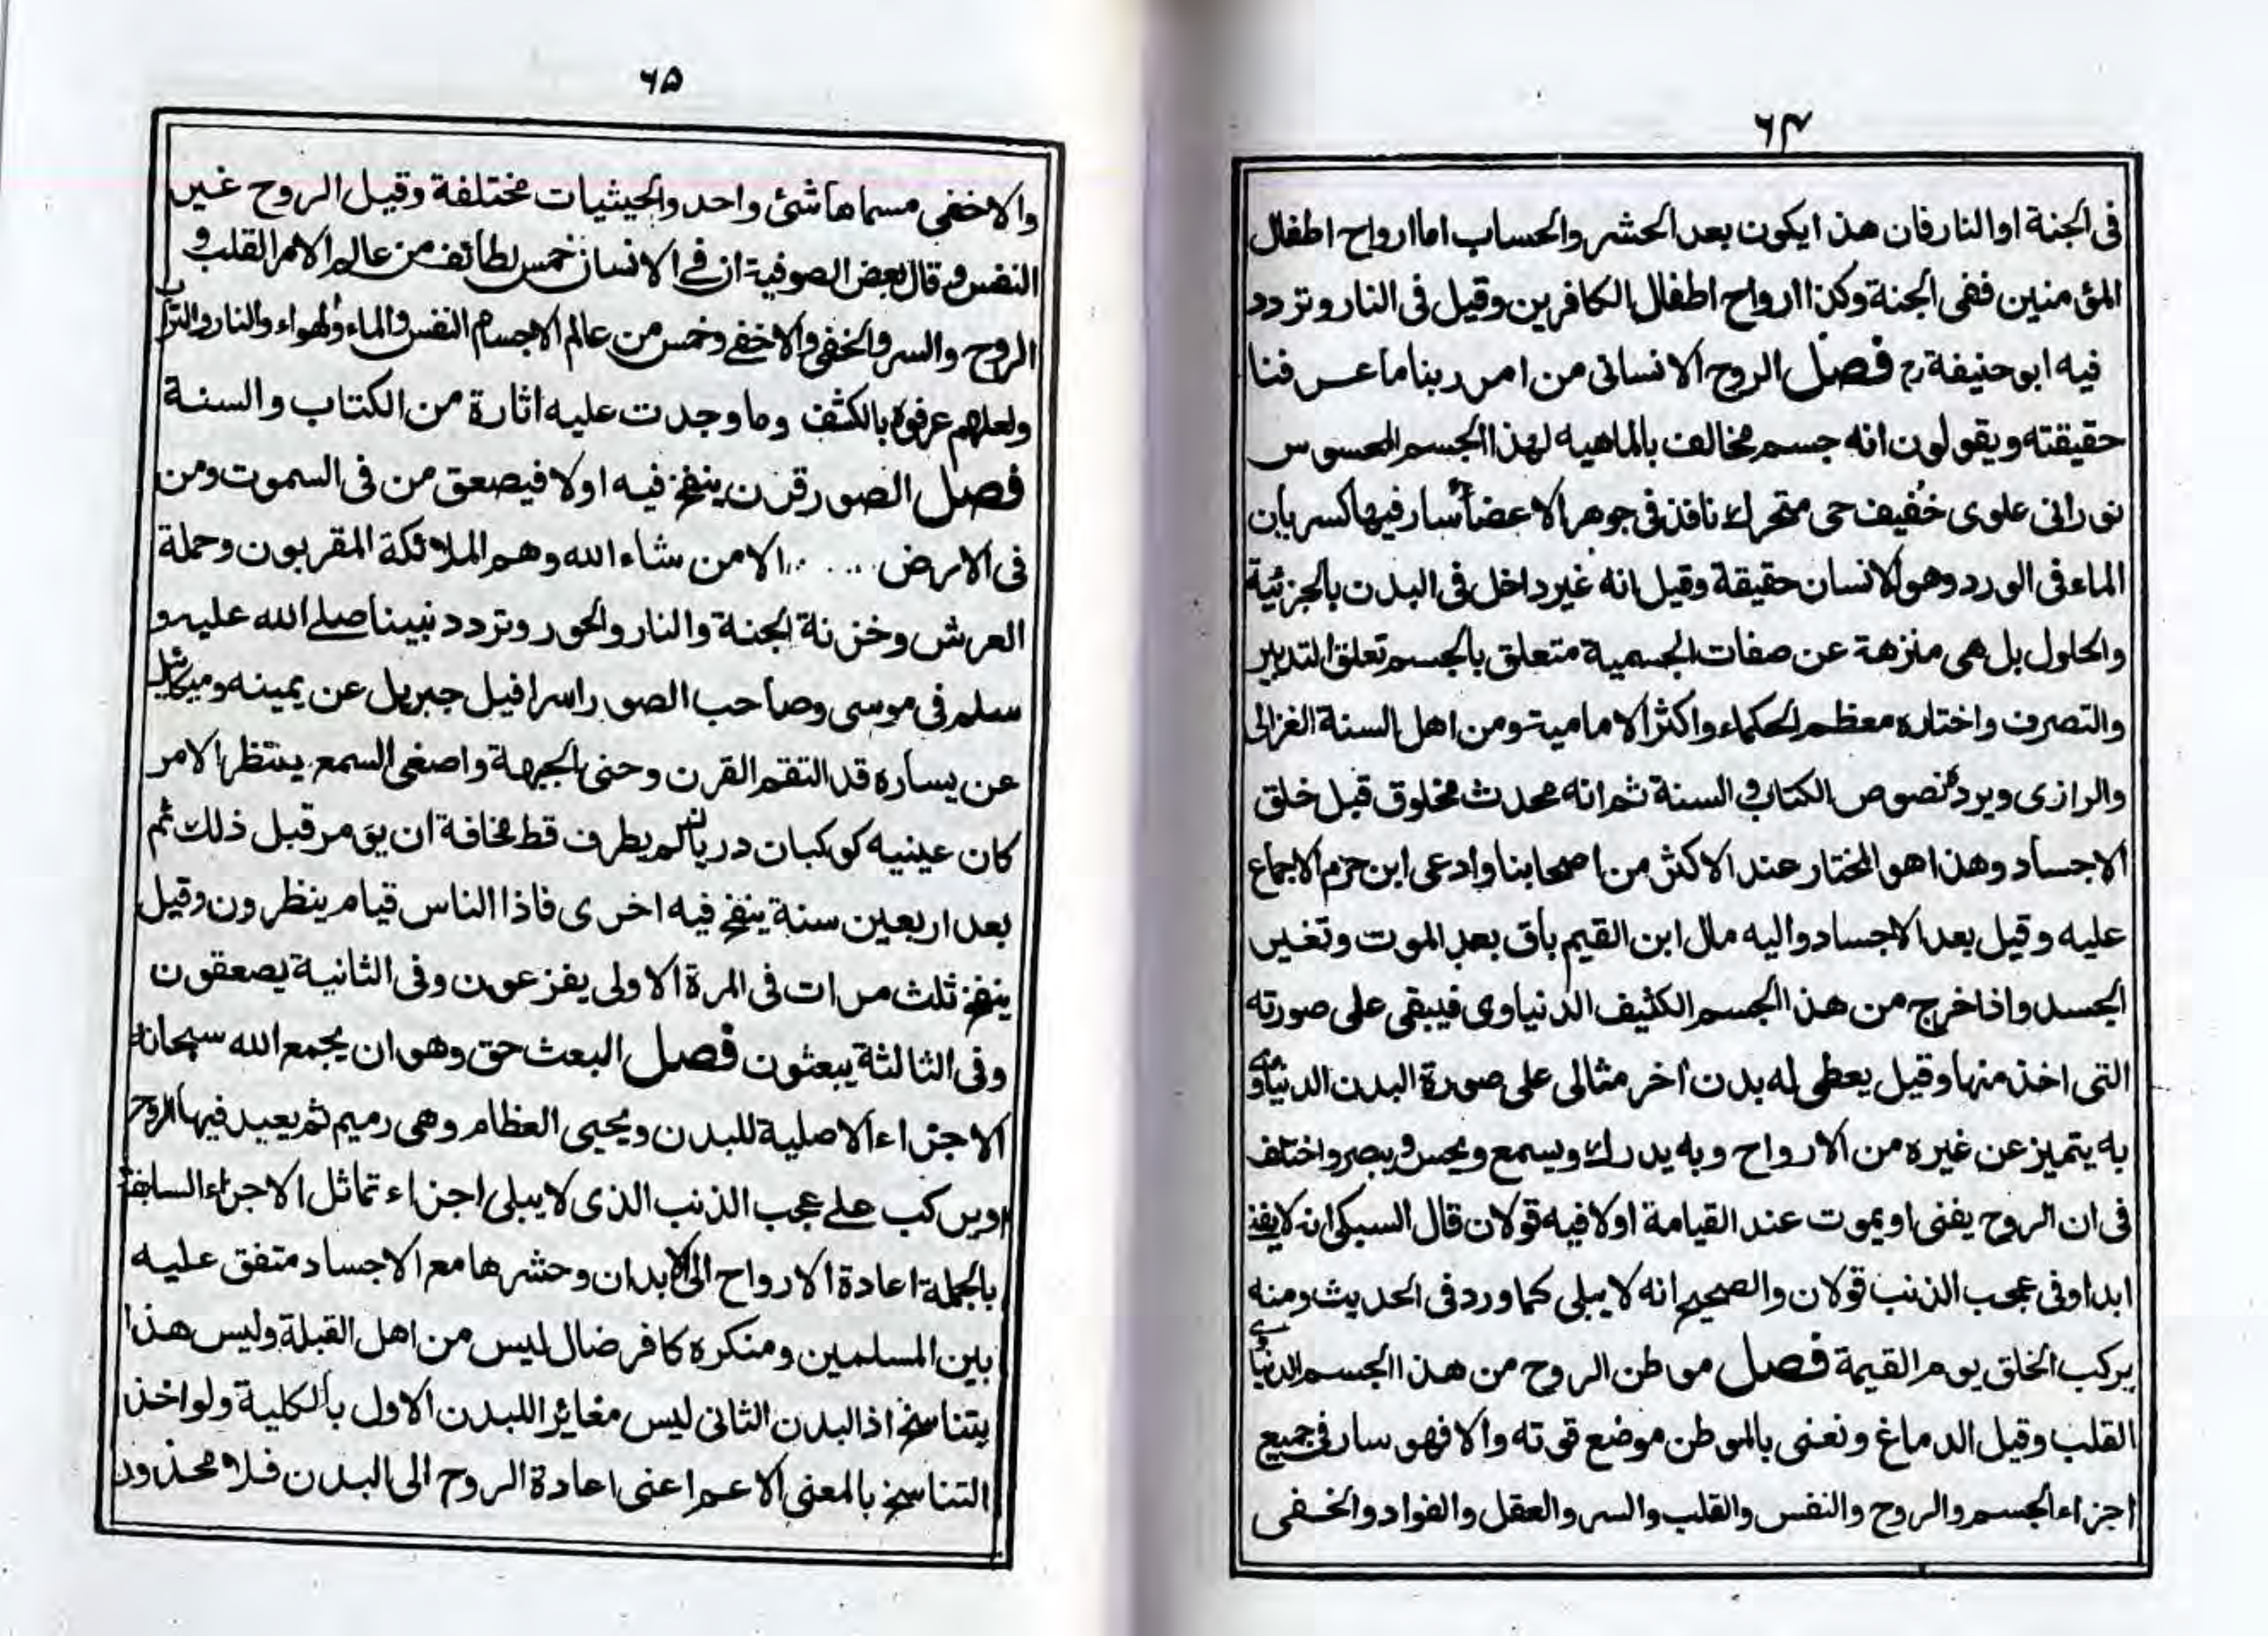 ۶۴
فى الجنة او النار فان هذا يكون بعد الحشر والحساب اما ارواح اطفال
المؤمنين ففى الجنة وكذا ارواح اطفال الكافرين وقيل فى النار وتردد
فيه ابو حنيفة رح فصل الروح الانسانى من امر ربنا ما عرفنا
حقيقته ويقولون انه جسم مخالف بالماهيه لهذا الجسم المحسوس
نورانى علوى خفيف حى متحرك نافذ فى جوهر الاعضاء سار فيها كسريان
الماء فى الورد وهو الانسان حقيقة وقيل انه غير داخل فى البدن بالجزئية
والحلول بل هى منزهة عن صفات الجسمية متعلق بالجسم تعلق التدبير
والتصرف واختاره معظم الحكماء واكثر الامامية ومن اهل السنة الغزالى
والرازى ويرده نصوص الكتاب و السنة ثم انه محدث مخلوق قبل خلق
الاجساد وهذا هو المختار عند الاكثر من اصحابنا وادعى ابن حزم الاجماع
عليه وقيل بعد الاجساد واليه مال ابن القيم باق بعد الموت وتغير
الجسد واذا خرج من هذا الجسم الكثيف الدنياوى فيبقى على صورته
التى اخذ منها وقيل يعطى له بدن اخر مثالى على صورة البدن الدنياوى
به يتميز عن غيره من الارواح وبه يدرك ويسمع ويحس ويبصر واختلف
فى ان الروح يفنى او يموت عند القيامة اولا فيه قولان قال السبكى انه لا يفنے
ابدا وفى عجب الذنب قولان والصحيح انه لا يبلى كما ورد فى الحديث ومنه
يركب الخلق يوم القيمة فصل موطن الروح من هذا الجسم الدنياوى
القلب وقيل الدماغ ونعنى بالموطن موضع قوته والا فهو سار فى جميع
اجزاء الجسم والروح والنفس والقلب والسر والعقل والفواد والخفى
۶۵
والاخفى مسماها شئ واحد والحيثيات مختلفة وقيل الروح غير
النفس و قال بعض الصوفية ان فے الانسان خمس لطائف من عالم الامر القلب و
الروح والسر والخفى والاخفے وخمس من عالم الاجسام النفس والماء والهواء والنار والتراب
ولعلهم عرفوه بالكشف وما وجدت عليه اثارة من الكتاب والسنة
فصل الصور قرن ينفخ فيه اولا فيصعق من فى السموت ومن
فى الارض ..... الا من شاء الله وهم الملائكة المقربون وحملة
العرش وخزنة الجنة والنار والحور وتردد نبينا صلے الله عليه و
سلم فى موسى وصاحب الصور اسرافيل جبريل عن يمينه وميكائيل
عن يساره قد التقم القرن وحنى الجبهة واصغى السمع ينتظر الامر
كان عينيه كوكبان دريان لم يطرف قط مخافة ان يومر قبل ذلك ثم
بعد اربعين سنة ينفخ فيه اخرى فاذا الناس قيام ينظرون وقيل
ينفخ ثلث مرات فى المرة الاولى يفزعون وفى الثانية يصعقون
وفى الثالثة يبعثون فصل البعث حق وهو ان يجمع الله سبحانه
الاجزاء الاصلية للبدن ويحيى العظام وهى رميم ثم يعيد فيها الروح
او يركب علے عجب الذنب الذى لا يبلى اجزاء تماثل الاجزاء السابقة
بالجملة اعادة الارواح الى الابدان وحشرها مع الاجساد متفق عليه
بين المسلمين ومنكره كافر ضال ليس من اهل القبلة وليس هذا
بتناسخ اذ البدن الثانى ليس مغائرا للبدن الاول بالكلية ولو اخذ
التناسخ بالمعنى الاعم اعنى اعادة الروح الى البدن فلا محذور